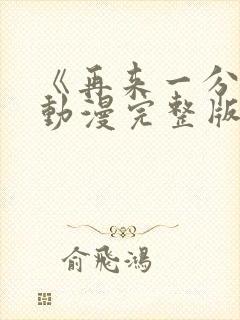 《再来一分
動漫完整版
俞飛鴻